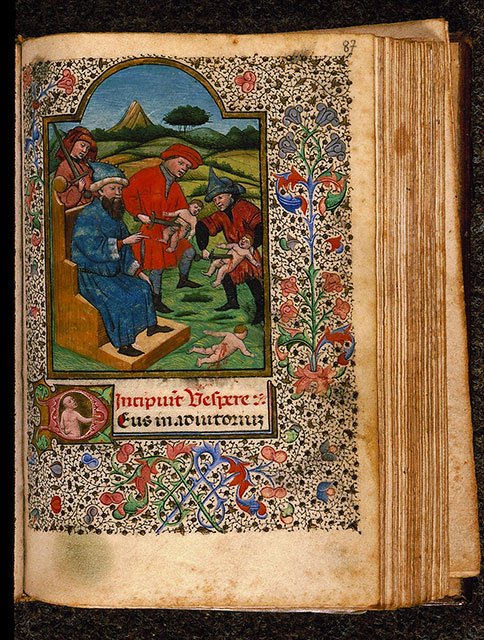 87
Incipiūt Vespere
Deus in adiutoriuz